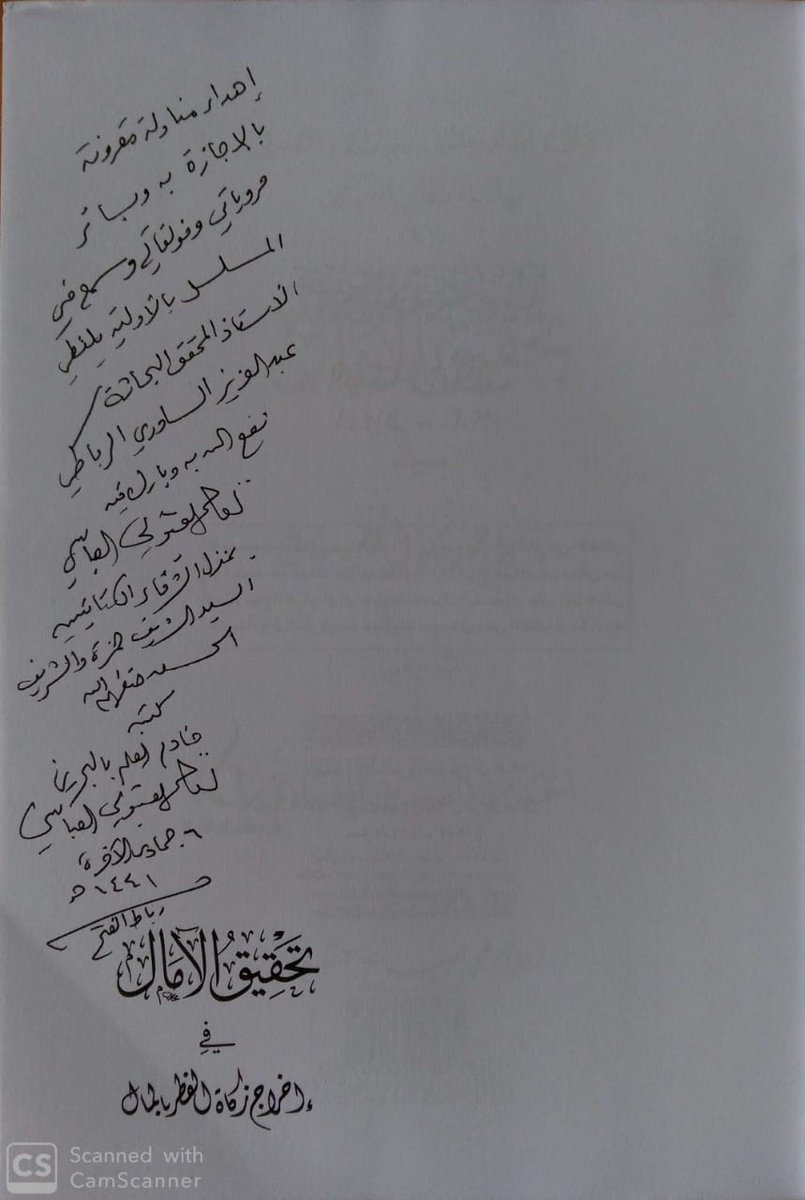 إهداء مناولة مقرونة
بالإجازة به وبسائر
مروياتي ومؤلفاتي وسمع مني
المسلسل بالأولية بلفظي
الأستاذ المحقق البحاثة
عبد العزيز الساوري الرباطي
نفع الله به وبارك فيه
نظام العباسي
بمنزل الشرفاء الكتانيين
السيد الشريف حمزة والشريف
الحسن حفظهم الله
كتبه
خادم العلم بالبحرين
نظام العباسي
٦ جمادى الآخرة
١٤٤١ هـ
رباط الفتح
تحقيق الآمال
في
إخراج زكاة الفطر بالمال
CS Scanned with
CamScanner